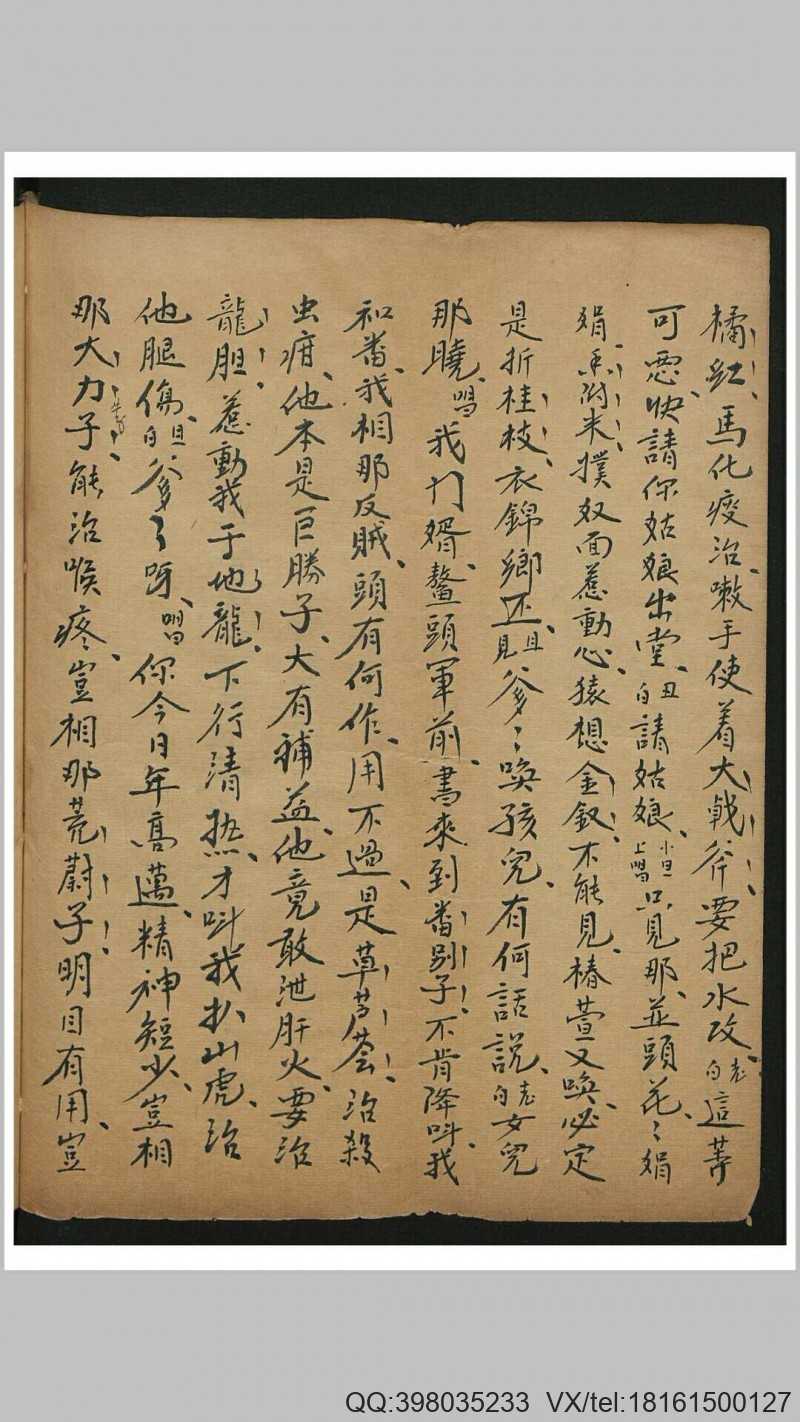 橘紅、馬化痰治嗽手使着大戟斧要把水攻、老白這等
可惡、快請你姑娘出堂、丑白請姑娘、小旦上唱只見那並頭花、〻娟
娟、香附米、撲奴面惹動心猿想金釵、不能見、椿萱又喚、必定
是折桂枝、衣錦鄉还、旦見爹〻喚孩兒、有何話說、老白女兒
那曉、唱我門婿鰲頭軍前、書來到番别子、不肯降叫我
和番、我相那反賊、頭有何作、用不過、是草蘆薈、治殺
虫疳、他本是巨勝子、大有補益、他竟敢泄肝火、要治
龍胆、惹動我于地龍、下行清热、才叫我扒山虎、治
他腿傷、旦白爹〻呀、唱你今日年高邁、精神短少、豈相
那大力子牛旁、能治喉疼、豈相那茺蔚子明目有用、豈
QQ:398035233 VX/tel:18161500127